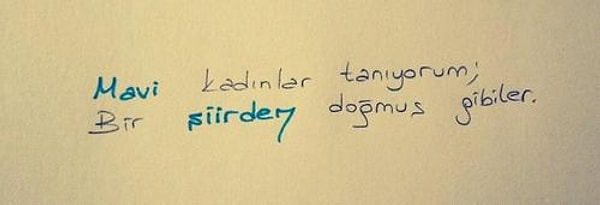 Mavi kadınlar tanıyorum;
Bir şiirden doğmuş gibiler.